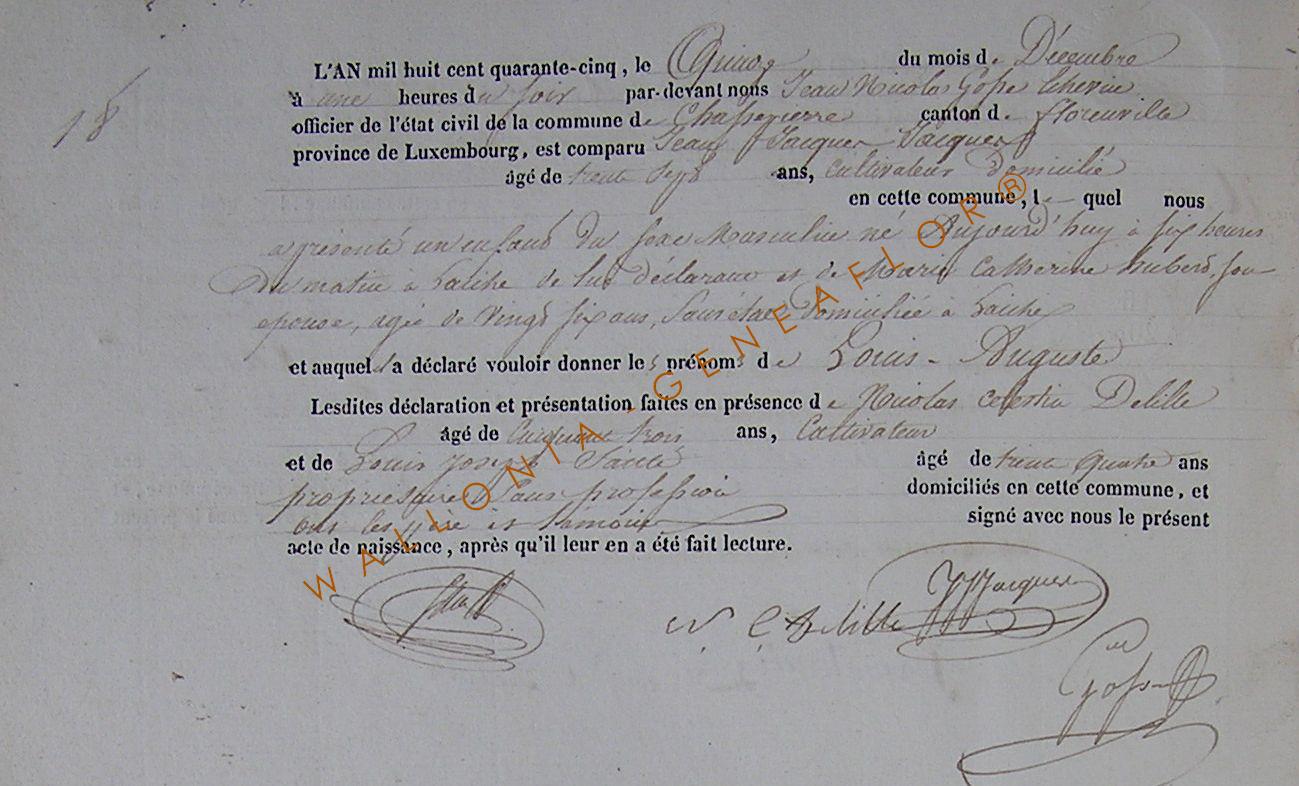 18
L'AN mil huit cent quarante-cinq, le Quinze du mois de Décembre
à une heures du soir par-devant nous Jean Nicolas Gofse Echevin
officier de l'état civil de la commune de Chassepierre canton de florenville
province de Luxembourg, est comparu Jean Jacques Jacques
âgé de trente Sept ans, Cultivateur Domicilié
en cette commune, l quel nous
a presenté un enfant du sexe Masculin né Aujourd'huy à six heures
Du matin à Laiche de lui déclarant et de Marie Catherine hubert, son
epouse, agée de Vingt six ans, Domiciliée à Laiche
et auquel il a déclaré vouloir donner les prénoms de Louis-Auguste
Lesdites déclaration et présentation faites en présence de Nicolas Celestin Delille
âgé de Cinquante trois ans, Cultivateur
et de Louis Joseph âgé de trente Quatre ans
propriétaire Sans profession domiciliés en cette commune, et
ont les père et témoins signé avec nous le présent
acte de naissance, après qu'il leur en a été fait lecture.
N. C. Delille
JJJacques
Gofse
WALLONIA-GENEAFLOR®